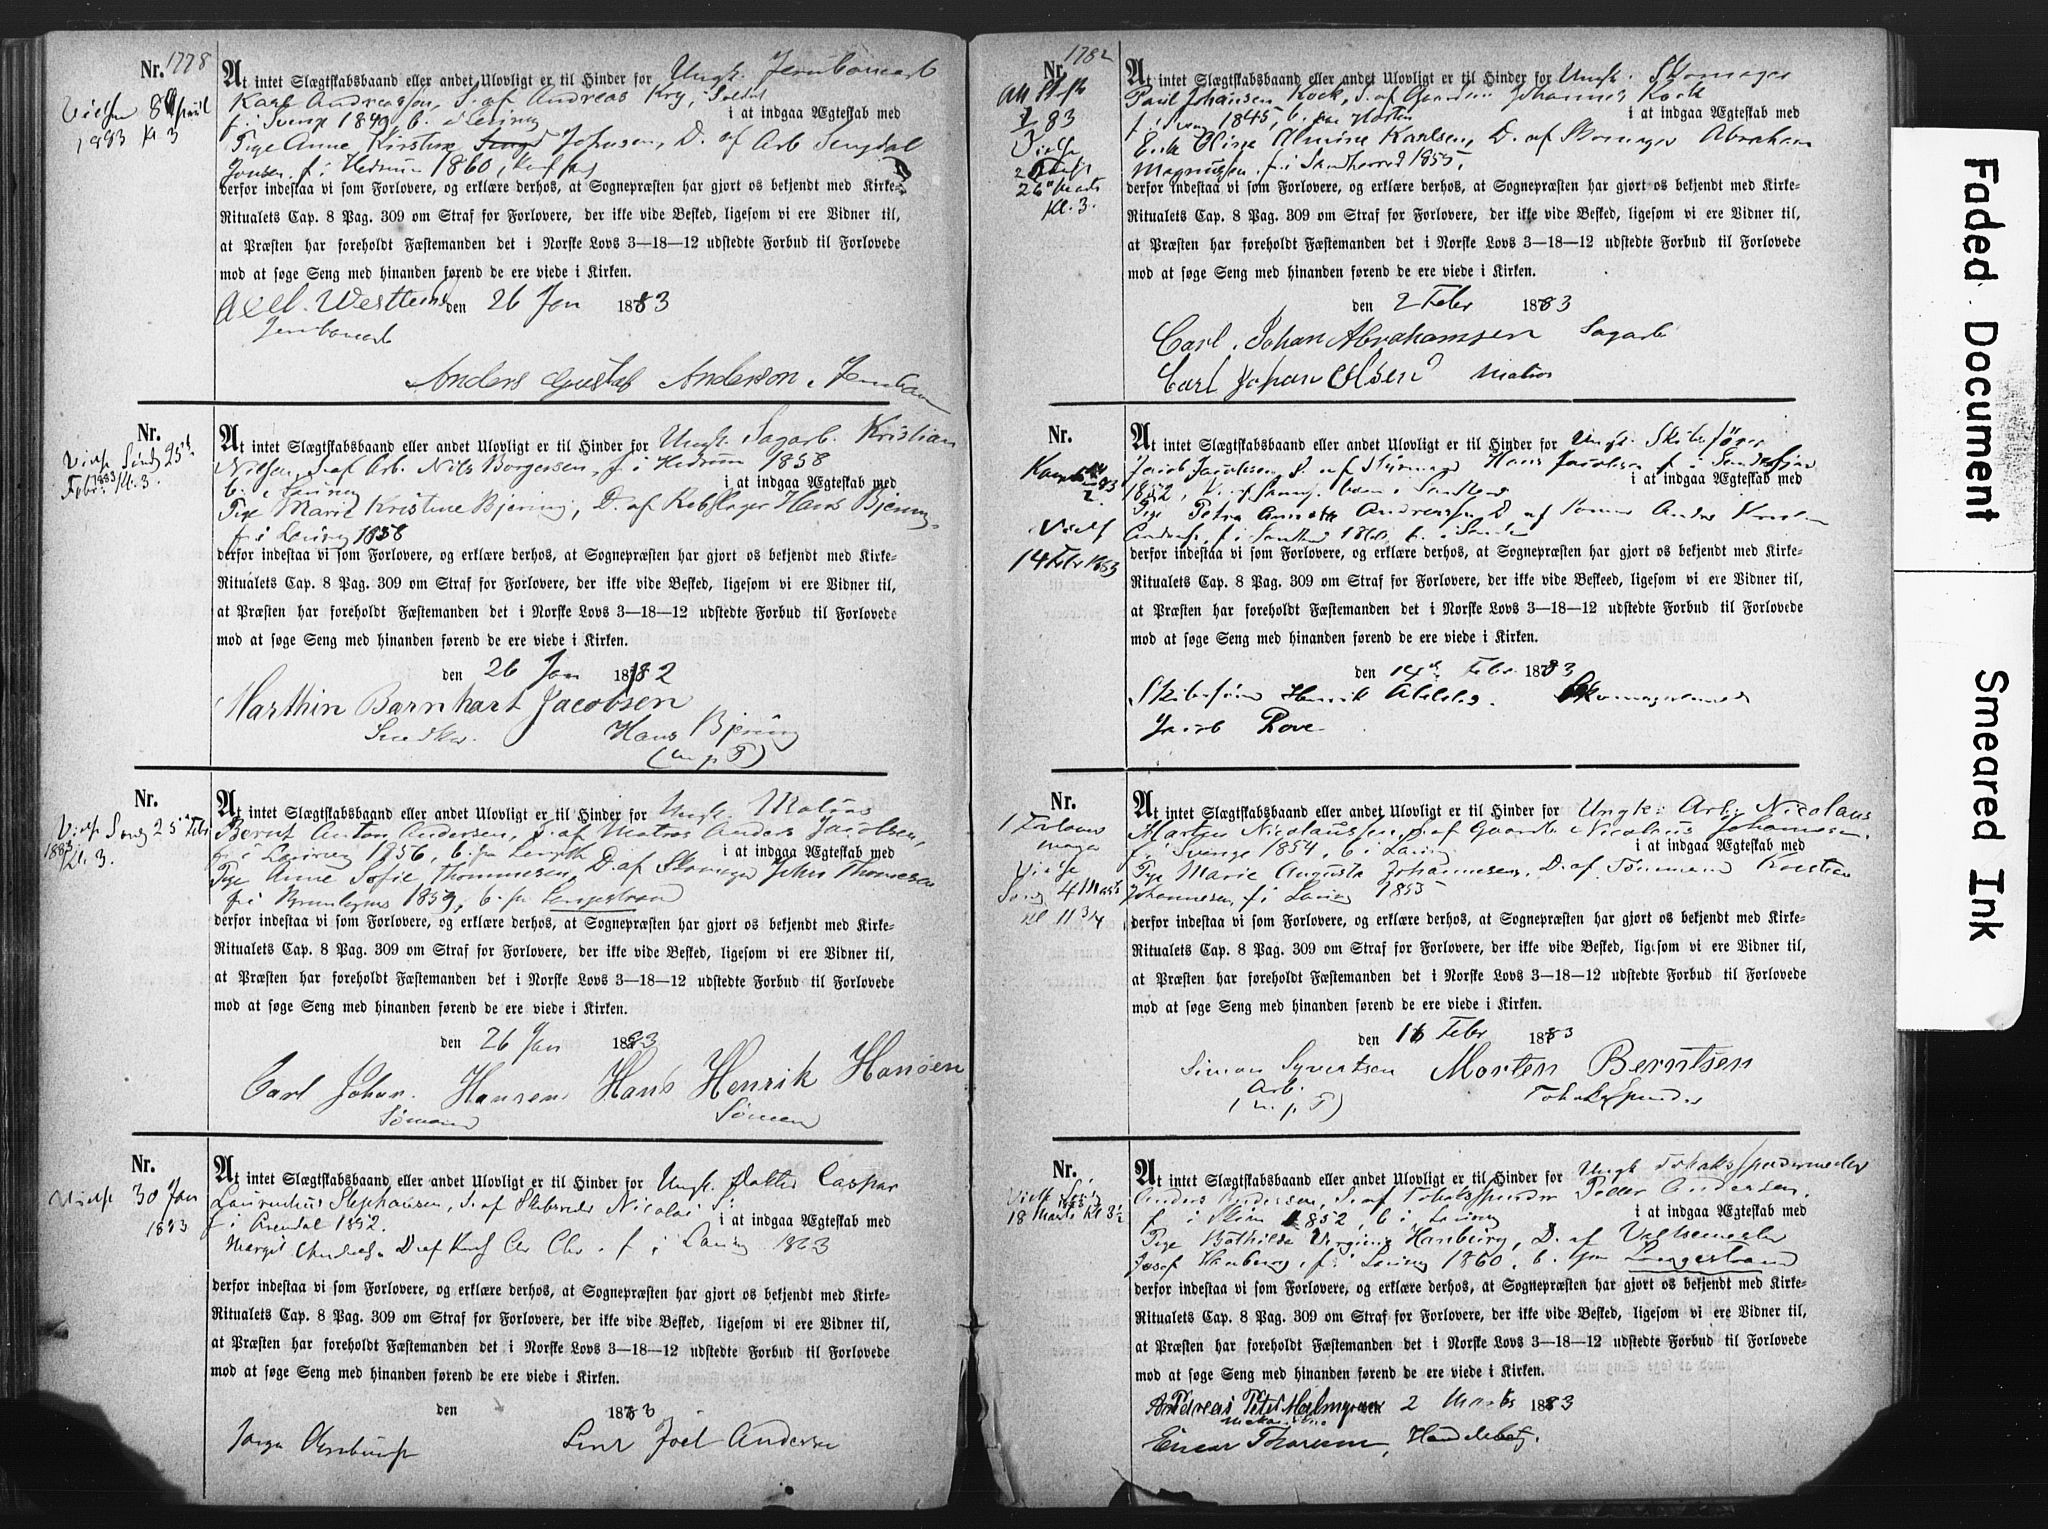 Nr. 1778
Vielse 8 April
1883 Kl 3
At intet Slægtskabsbaand eller andet Ulovligt er til Hinder for Ungk. Jernbanearb
Karl Andreasson, S. af Andreas Kry, Soldat
i at indgaa Ægteskab med
f. i Sverige 1849, b. i Laurvig
Pige Anne Kirstine Johnsen, D. af Arb
f. i Hedrum 1860,
derfor indestaa vi som Forlovere, og erklære derhos, at Sognepræsten har gjort os bekjendt med Kirke-
Ritualets Cap. 8 Pag. 309 om Straf for Forlovere, der ikke vide Besked, ligesom vi ere Vidner til,
at Præsten har foreholdt Fæstemanden det i Norske Lovs 3—18—12 udstedte Forbud til Forlovede
mod at søge Seng med hinanden førend de ere viede i Kirken.
Axel. Westlund den 26 Jan 1883
Jernbanearb
Anders Gustaf Anderson. Jernban
Nr.
Vielse Sönd 25de
Febr. 1883 Kl. 3.
At intet Slægtskabsbaand eller andet Ulovligt er til Hinder for Ungk. Sagarb. Kristian
Nilsen, S. af Arb. Nils Borgersen, f. i Hedrum 1858
i at indgaa Ægteskab med
b. i Laurvig
Pige Marie Kristine Bjering, D. af Rebslager Hans Bjering,
f. i Laurvig 1858
derfor indestaa vi som Forlovere, og erklære derhos, at Sognepræsten har gjort os bekjendt med Kirke-
Ritualets Cap. 8 Pag. 309 om Straf for Forlovere, der ikke vide Besked, ligesom vi ere Vidner til,
at Præsten har foreholdt Fæstemanden det i Norske Lovs 3—18—12 udstedte Forbud til Forlovede
mod at søge Seng med hinanden førend de ere viede i Kirken.
den 26 Jan 1882
Marthin Barnhart Jacobsen
Snedker. Hans Bjering
(m. p. P)
Nr.
Vielse Sönd 25de Febr
1883 Kl. 3.
At intet Slægtskabsbaand eller andet Ulovligt er til Hinder for Ungk. Matros
Bernt Anton Andersen, S. af Matros Anders Jacobsen,
i at indgaa Ægteskab med
f. i Laurvig 1856, b. paa
Pige Anne Sofie Thommesen, D. af Skomager John Thomesen
f. i Brunlagnes 1859, b. pa Langestrand
derfor indestaa vi som Forlovere, og erklære derhos, at Sognepræsten har gjort os bekjendt med Kirke-
Ritualets Cap. 8 Pag. 309 om Straf for Forlovere, der ikke vide Besked, ligesom vi ere Vidner til,
at Præsten har foreholdt Fæstemanden det i Norske Lovs 3—18—12 udstedte Forbud til Forlovede
mod at søge Seng med hinanden førend de ere viede i Kirken.
den 26 Jan 1883
Carl Johan. Hansen Hans Henrik Hansen
Sömand Sömand
Nr.
Vielse 30 Jan
1883
At intet Slægtskabsbaand eller andet Ulovligt er til Hinder for Ungk. Caspar
Laurentius Stephansen, S. af Skibsreder Nicolai S.
i at indgaa Ægteskab med
f. i Arendal 1852.
Margit D. af Chr. f. i Laurvig 1863
derfor indestaa vi som Forlovere, og erklære derhos, at Sognepræsten har gjort os bekjendt med Kirke-
Ritualets Cap. 8 Pag. 309 om Straf for Forlovere, der ikke vide Besked, ligesom vi ere Vidner til,
at Præsten har foreholdt Fæstemanden det i Norske Lovs 3—18—12 udstedte Forbud til Forlovede
mod at søge Seng med hinanden førend de ere viede i Kirken.
den 1883
Joel Andersen
Nr. 1782
83
Vielse
26 Marts
Kl. 3.
At intet Slægtskabsbaand eller andet Ulovligt er til Hinder for Ungk. Skomager
Paul Johansen Kock, S. af Gaardm Johannes Kock
i at indgaa Ægteskab med
f. i Sverig 1845, b. paa Horten
Enke Oline Almine Karlsen, D. af Skomager Abraham
Magnussen, f. i Sandherred 1855,
derfor indestaa vi som Forlovere, og erklære derhos, at Sognepræsten har gjort os bekjendt med Kirke-
Ritualets Cap. 8 Pag. 309 om Straf for Forlovere, der ikke vide Besked, ligesom vi ere Vidner til,
at Præsten har foreholdt Fæstemanden det i Norske Lovs 3—18—12 udstedte Forbud til Forlovede
mod at søge Seng med hinanden førend de ere viede i Kirken.
den 2 Febr 1883
Carl. Johan Abrahamsen Sagarb
Carl Johan Olsen Matros
Nr.
Vielse
14 Febr 1883
At intet Slægtskabsbaand eller andet Ulovligt er til Hinder for Ungk. Skibsfører
Jacob Jacobsen S. af Styrmand Hans Jacobsen f. i Sandefjord
i at indgaa Ægteskab med
1852,
Pige Petra Annette Andreassen D. af
derfor indestaa vi som Forlovere, og erklære derhos, at Sognepræsten har gjort os bekjendt med Kirke-
Ritualets Cap. 8 Pag. 309 om Straf for Forlovere, der ikke vide Beskeed, ligesom vi ere Vidner til,
at Præsten har foreholdt Fæstemanden det i Norske Lovs 3—18—12 udstedte Forbud til Forlovede
mod at søge Seng med hinanden førend de ere viede i Kirken.
den 14de Febr. 1883
Skibsfører Henrik
Jacob Rove
Nr.
Vielse
Sönd 4 Marts
Kl 11 3/4
At intet Slægtskabsbaand eller andet Ulovligt er til Hinder for Ungk: Arb. Nicolaus
Martin Nicolaussen, S. af Gaardb. Nicolaus Johannesen.
i at indgaa Ægteskab med
f. i Sverige 1854, b. i Laurvig
Pige Marie Augusta Johannesen, D. af Tömmermand Kristian
Johannesen, f. i Laurvig 1855
derfor indestaa vi som Forlovere, og erklære derhos, at Sognepræsten har gjort os bekjendt med Kirke-
Ritualets Cap. 8 Pag. 309 om Straf for Forlovere, der ikke vide Besked, ligesom vi ere Vidner til,
at Præsten har foreholdt Fæstemanden det i Norske Lovs 3—18—12 udstedte Forbud til Forlovede
mod at søge Seng med hinanden førend de ere viede i Kirken.
den 16 Febr 1883
Simon Syvertsen Morten Berntsen
Arb. Tobaksspinder
(m. p. P)
Nr.
Vielse Sönd
18 Marts Kl 3½
At intet Slægtskabsbaand eller andet Ulovligt er til Hinder for Ungk Tobaksspindermester
Anders Andersen, S. af Tobaksspinder Peder Andersen.
i at indgaa Ægteskab med
f. i Skien 1852, b. i Laurvig
Pige Bothilde Virginie Hanburg, D. af Valsemester
Josef Hanburg, f. i Laurvig 1860. b. paa Langestrand
derfor indestaa vi som Forlovere, og erklære derhos, at Sognepræsten har gjort os bekjendt med Kirke-
Ritualets Cap. 8 Pag. 309 om Straf for Forlovere, der ikke vide Besked, ligesom vi ere Vidner til,
at Præsten har foreholdt Fæstemanden det i Norske Lovs 3—18—12 udstedte Forbud til Forlovede
mod at søge Seng med hinanden førend de ere viede i Kirken.
Andreas Peter Holmgreen 2 Marts 1883
Einar Thoresen, Handelsbetj.
Faded Document
Smeared Ink